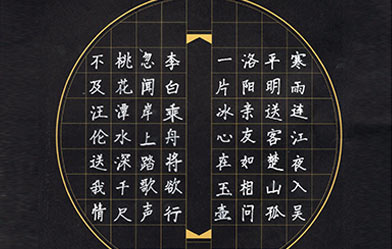 寒雨连江夜入吴
平明送客楚山孤
洛阳亲友如相问
一片冰心在玉壶
李白乘舟将欲行
忽闻岸上踏歌声
桃花潭水深千尺
不及汪伦送我情